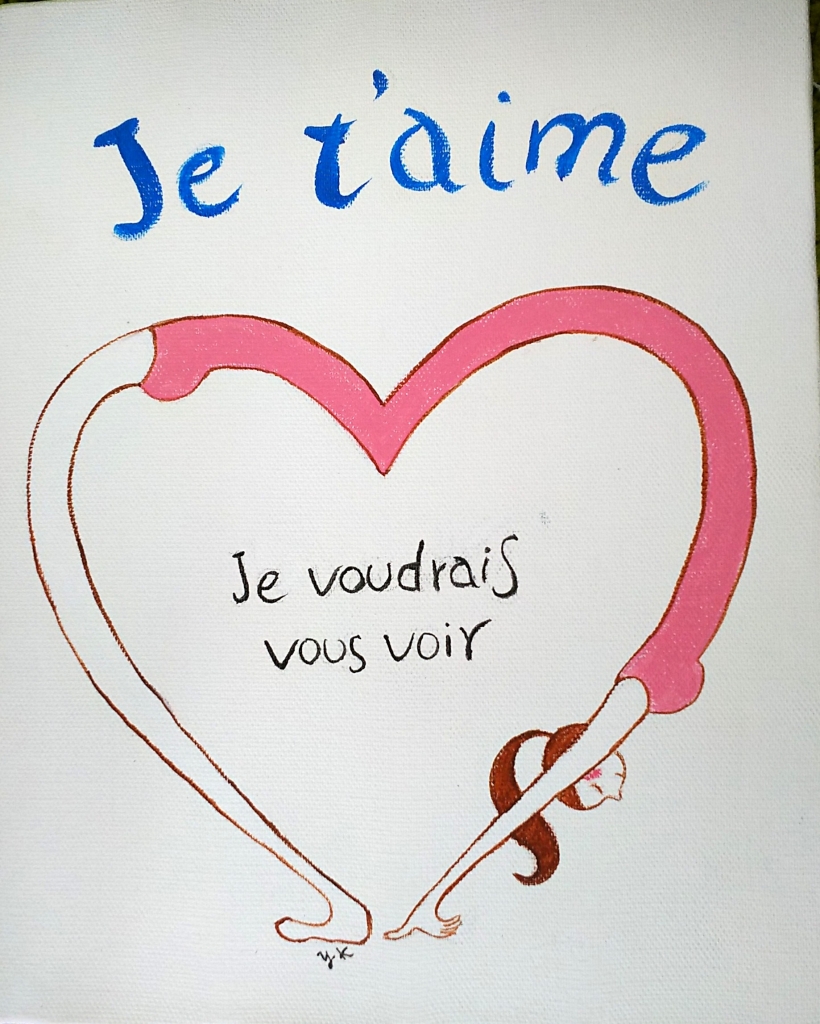 Je t'aime
Je voudrais
vous voir
y.K